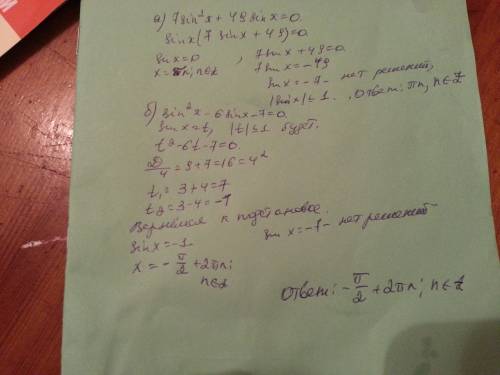 а) 7sin²x + 49 sinx = 0.
sinx(7 sinx + 49) = 0.
sinx = 0 , 7sinx + 49 = 0.
x = πn; n∈Z 7sinx = -49
sinx = -7 - нет решений,
|sinx| ≤ 1. Ответ: πn, n∈Z
б) sin²x - 6sinx - 7 = 0.
sinx = t, |t| ≤ 1 будет.
t² - 6t - 7 = 0.
D/4 = 9 + 7 = 16 = 4²
t₁ = 3 + 4 = 7
t₂ = 3 - 4 = -1
Вернёмся к подстановке.
sinx = -1. sin x = -7 - нет решений
x = -π/2 + 2πn;
n∈Z
Ответ: -π/2 + 2πn; n∈Z